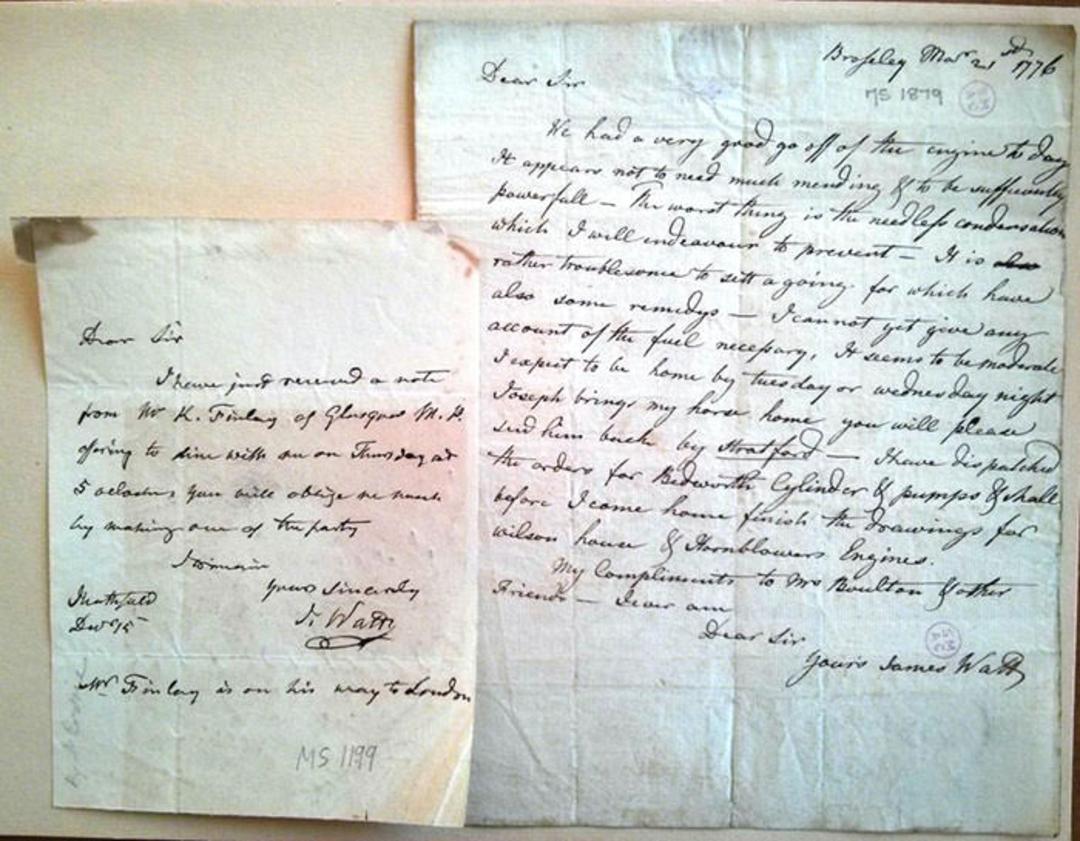 Dear Sir
I have just received a note
from Mr K. Finlay of Glasgow M.P.
offering to dine with me on Thursday at
5 oclock, you will oblige me much
by making one of the party
I remain
Yours sincerely
J. Watt
Heathfield
Decr 15
Mr Finlay is on his way to London
MS 1199
Broseley Mar 21st 1776
MS 1879
Dear Sir
We had a very good go off of the engine to day
It appears not to need much mending & to be sufficiently
powerfull – The worst thing is the needless condensation
which I will endeavour to prevent – It is
rather troublesome to sett a going for which have
also some remedys – I cannot yet give any
account of the fuel necessary, It seems to be moderate
I expect to be home by tuesday or wednesday night
Joseph brings my horse home you will please
send him back by Stratford – I have dispatched
the orders for Bedworth Cylinder & pumps & shall
before I come home finish the drawings for
wilson house & Hornblowers Engines.
My Compliments to Mrs Boulton & other
Friends – I ever am
Dear Sir
Yours James Watt